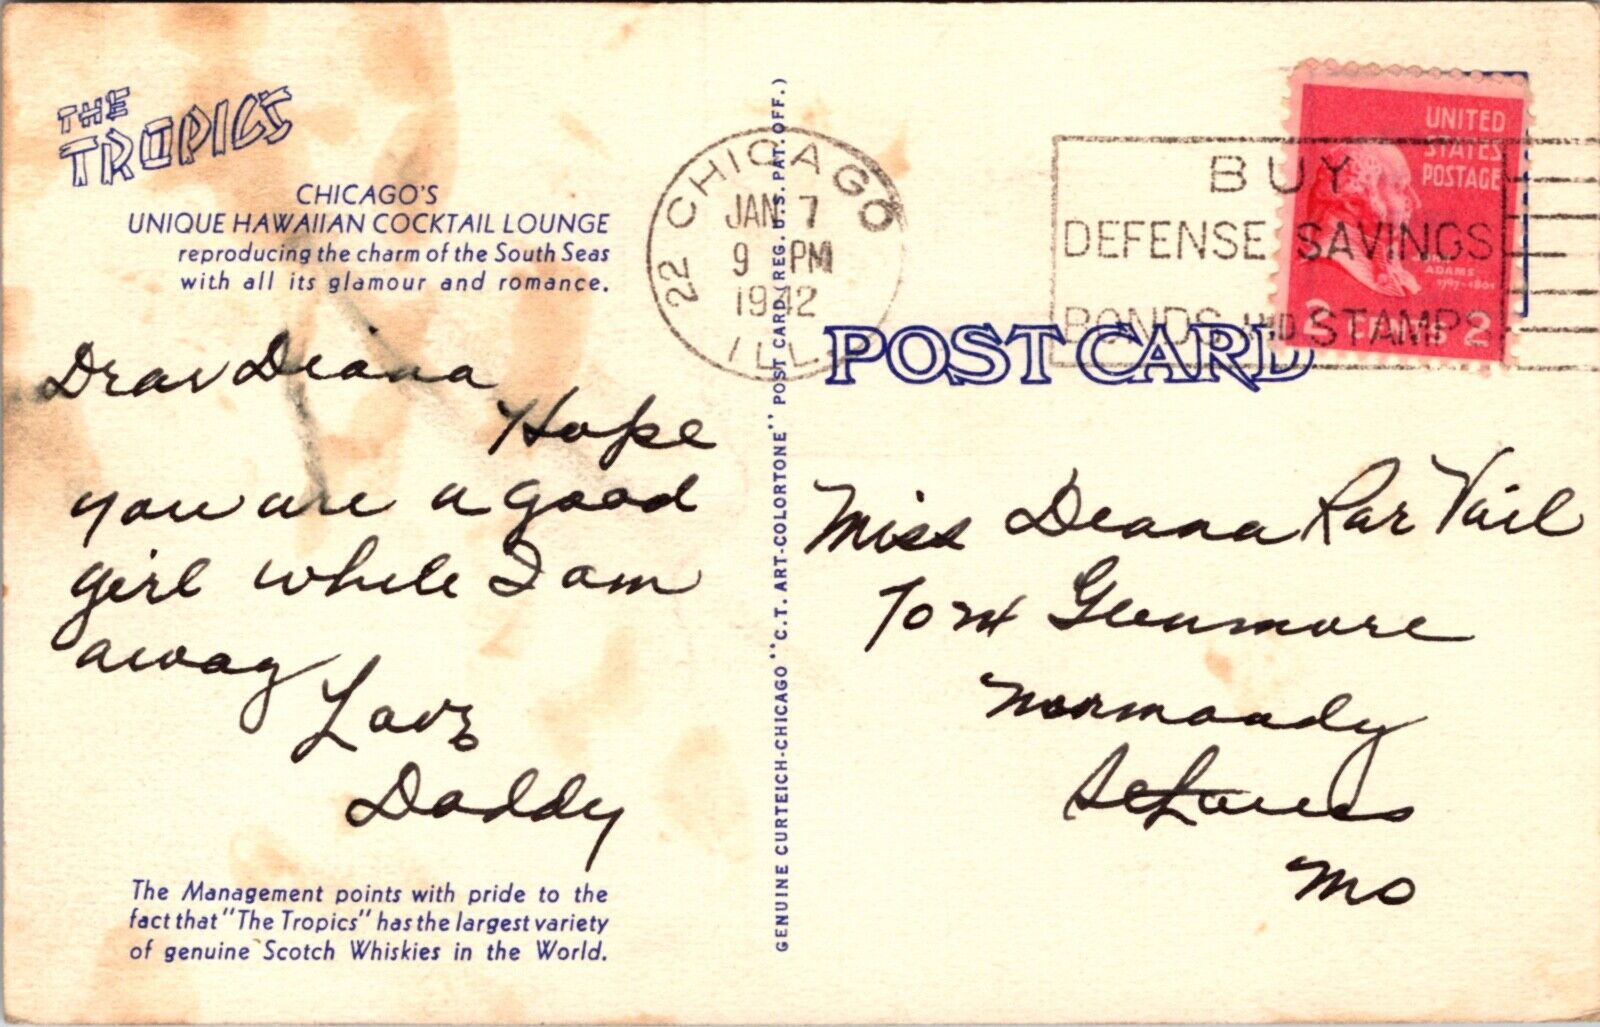 THE
TROPICS
CHICAGO'S
UNIQUE HAWAIIAN COCKTAIL LOUNGE
reproducing the charm of the South Seas
with all its glamour and romance.
Dear Deana
Hope
you are a good
girl while I am
away
Love
Daddy
The Management points with pride to the
fact that "The Tropics" has the largest variety
of genuine Scotch Whiskies in the World.
GENUINE CURTEICH-CHICAGO "C.T. ART-COLORTONE" POST CARD (REG. U.S. PAT. OFF.)
22 CHICAGO
JAN 7
9 PM
1942
ILL.
BUY
DEFENSE SAVINGS
BONDS AND STAMPS
UNITED
STATES
POSTAGE
ADAMS
1797-1801
2 CENTS 2
POST CARD
Miss Deana Rae Vail
Glenmore
Normandy
St Louis
Mo